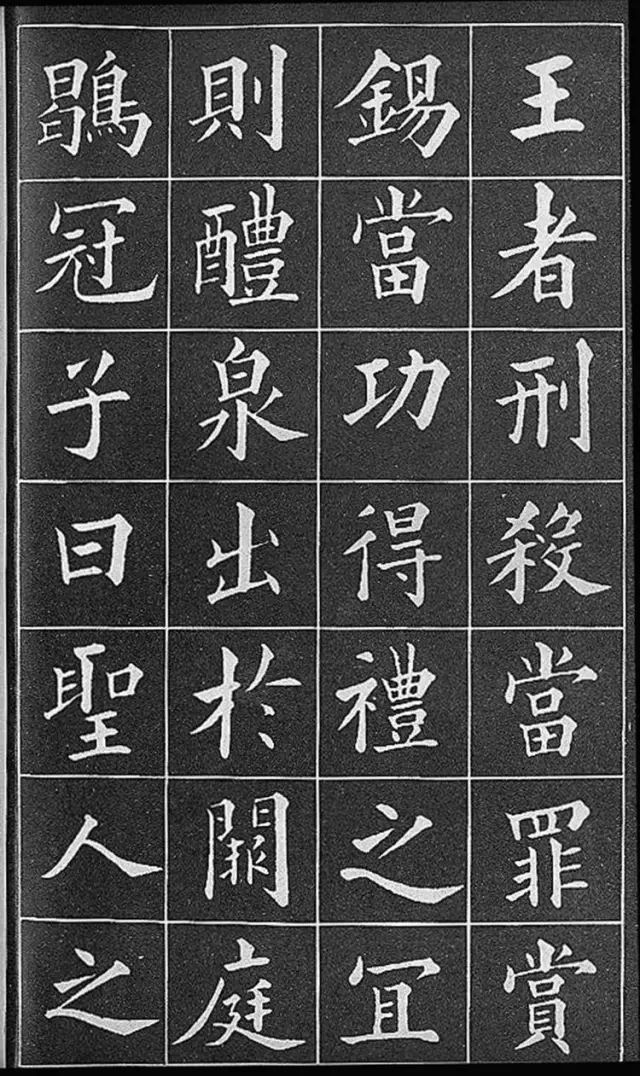 王者刑殺當罪賞
錫當功得禮之冝
則醴泉出於闕庭
鶡冠子曰聖人之